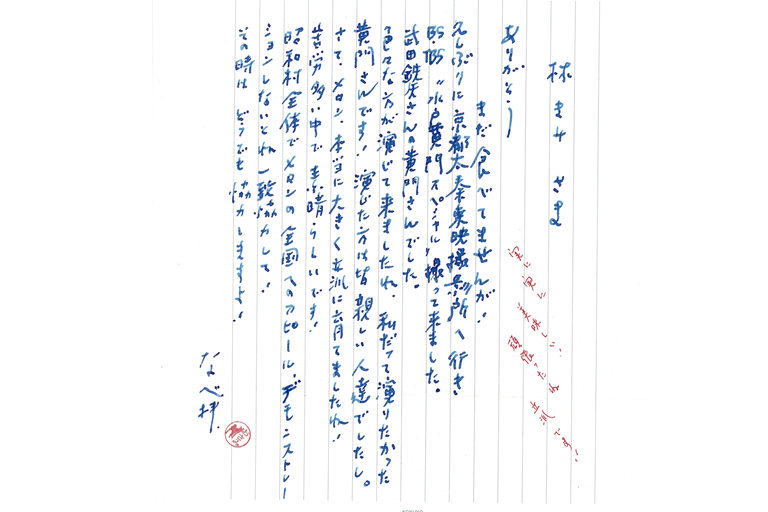 林 まサ さま
ありがとう!
まだ食べてませんが!
久しぶりに京都太秦東映撮影所へ行き
BS・TBS "水戸黄門スペシャル"撮って来ました。
武田鉄矢さんの黄門さんでした。
色々な方が演じて来ましたね、私だって演りたかった
黄門さんです! 演じた方は皆親しい人達でしたし。
さて、メロン、本当に大きく立派に育てましたね!
苦労多い中で素晴らしいです!
昭和村全体でメロンの全国へのアピール、デモンストレー
ションしないとね 一致協力して!
その時は どうでも協力しますよ!
なべ拝.
実に実に
美味しい、
頑張ったね
立派です!